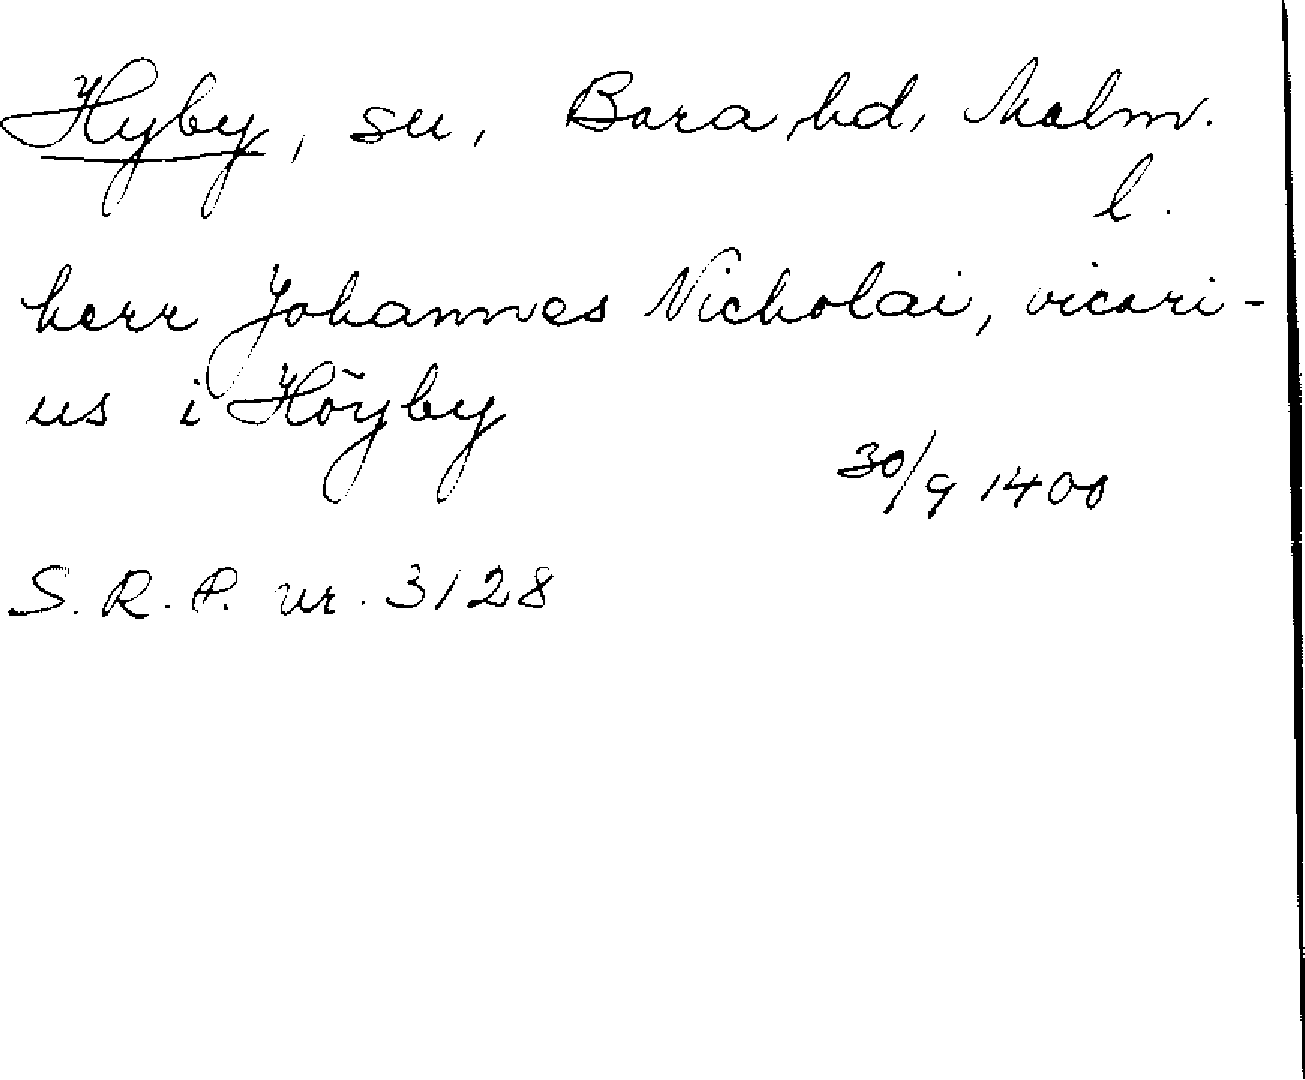 Hyby, sn, Bara hd, Malm.
l.
herr Johannes Nicholai, vicari-
us i Höyby
30/9 1400
S. R. P. nr. 3128